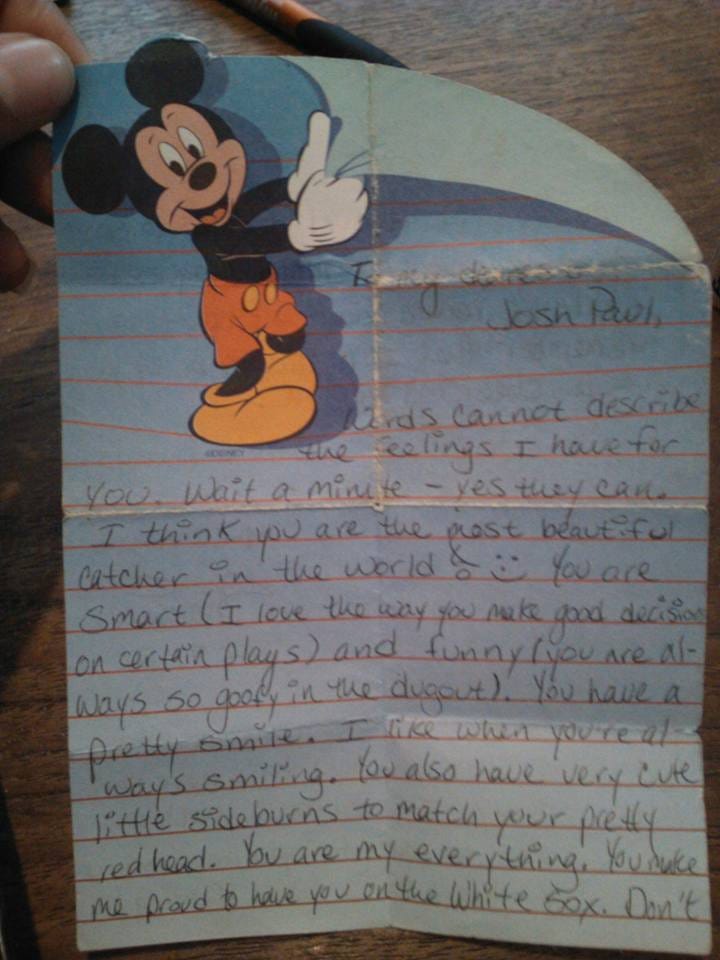 To my
Josh Paul,
Words cannot describe
©DISNEY
the feelings I have for
you. Wait a minute - yes they can.
I think you are the most beautiful
catcher in the world & :) You are
smart (I love the way you make good decision
on certain plays) and funny (you are al-
ways so goofy in the dugout). You have a
pretty smile. I like when you're al
ways smiling. You also have very cute
little sideburns to match your pretty
red head. You are my everything. You make
me proud to have you on the White Sox. Don't